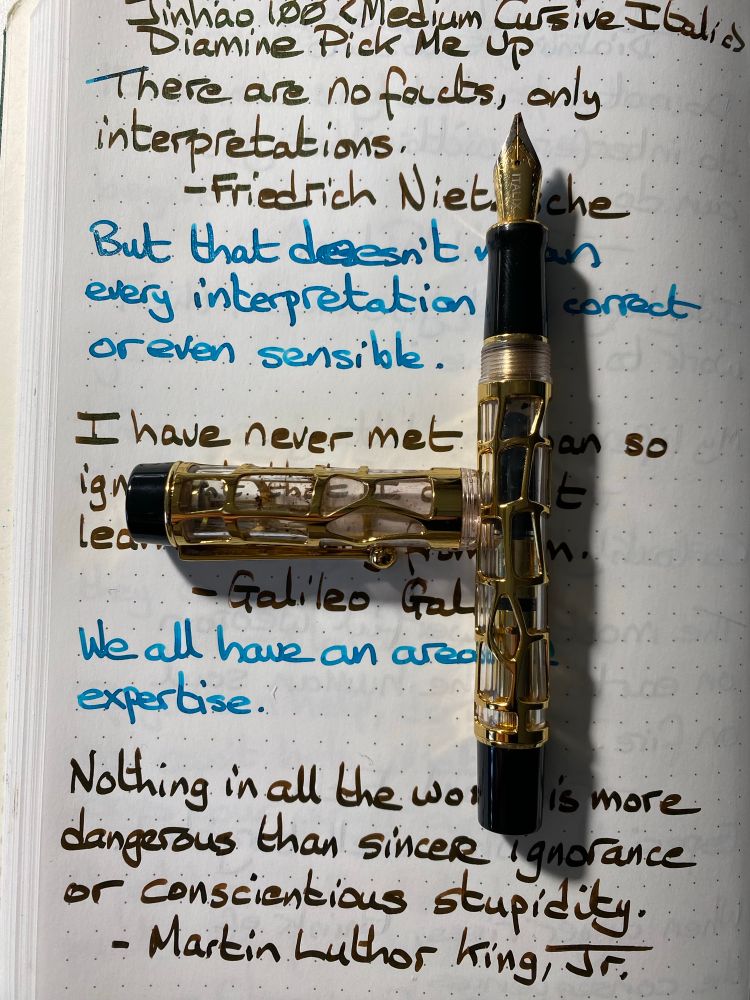 Jinhao 100 <Medium Cursive Italic>
Diamine Pick Me Up
There are no facts, only
interpretations.
- Friedrich Nietzsche
But that doesn't mean
every interpretation correct
or even sensible.
I have never met man so
ign
lea
- Galileo Gal
We all have an area
expertise.
Nothing in all the world is more
dangerous than sincere ignorance
or conscientious stupidity.
- Martin Luthor King, Jr.